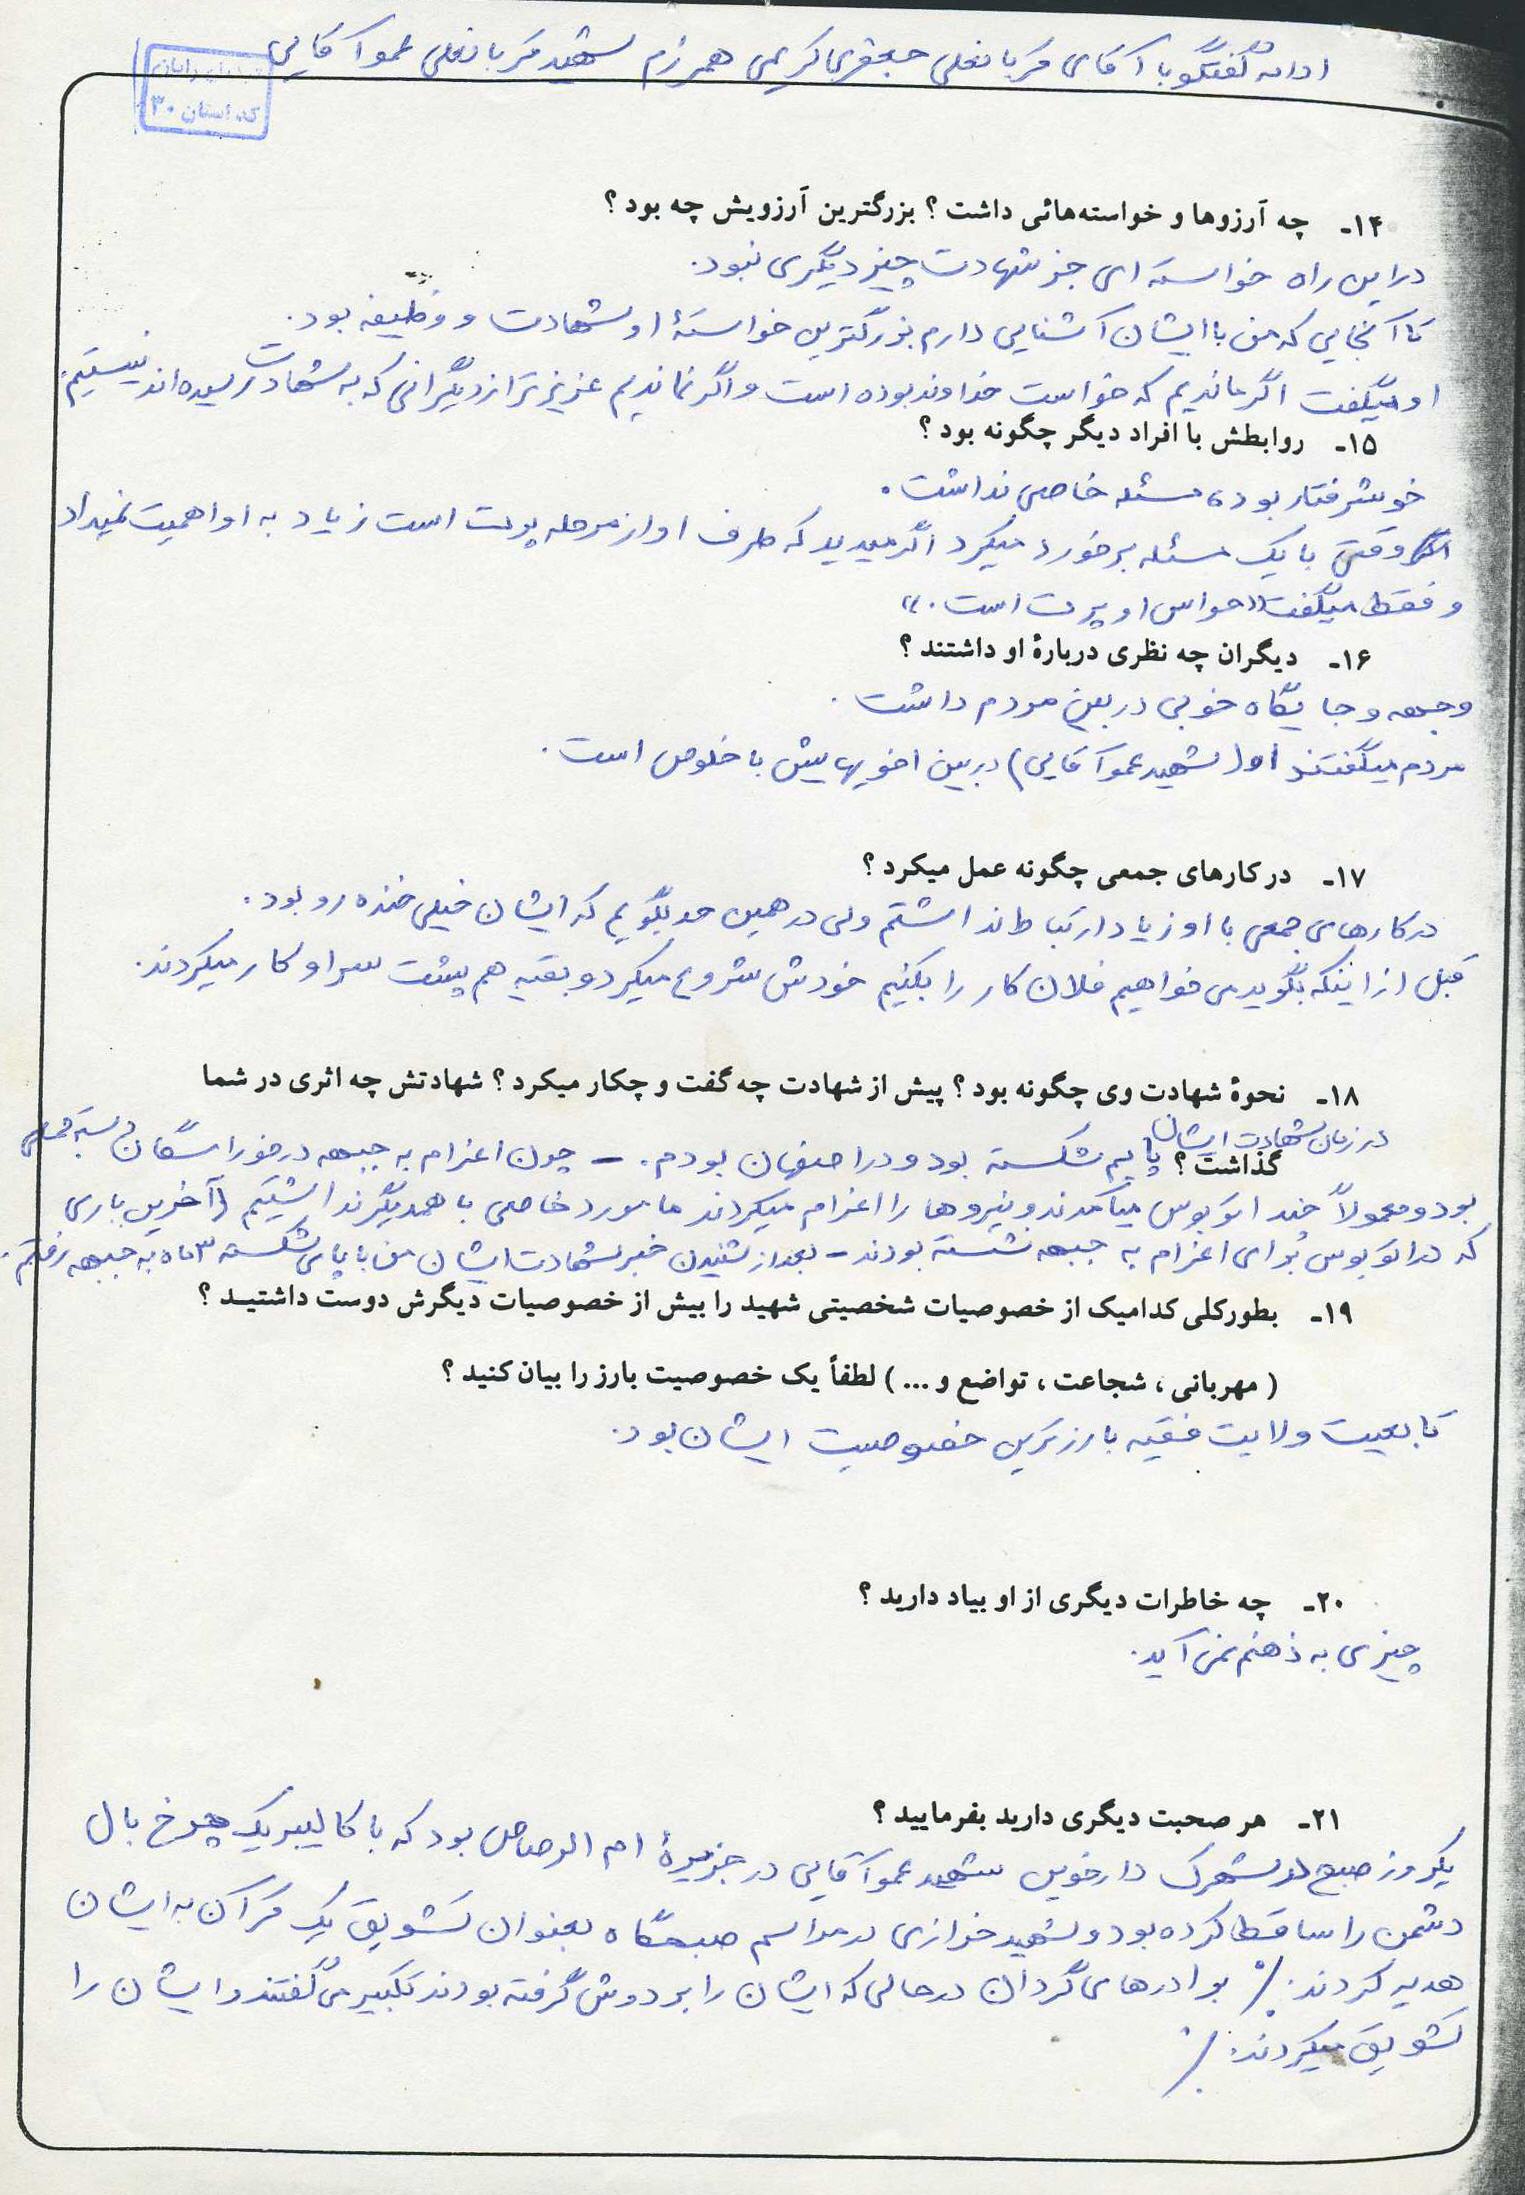 ادامه گفتگو با آقای قربانعلی جعفری کریمی همرزم شهید قربانعلی عمو آقایی
کد استان ۳۰
۱۴- چه آرزوها و خواسته‌هائی داشت ؟ بزرگترین آرزویش چه بود ؟
در این راه خواسته ای جز شهادت چیز دیگری نبود.
تا آنجایی که من با ایشان آشنایی دارم بزرگترین خواستهٔ او شهادت و وظیفه بود.
او میگفت اگر ماندیم که خواست خداوند بوده است و اگر نماندیم عزیزتر از دیگرانی که به شهادت رسیده اند نیستیم.
۱۵- روابطش با افراد دیگر چگونه بود ؟
خوشرفتار بود، مسئله خاصی نداشت.
وقتی با یک مسئله برخورد میکرد اگر میدید که طرف او از مرحله پرت است زیاد به او اهمیت نمیداد
و فقط میگفت «حواس او پرت است.»
۱۶- دیگران چه نظری دربارهٔ او داشتند ؟
وجهه و جایگاه خوبی در بین مردم داشت.
مردم میگفتند او (شهید عمو آقایی) در بین اخویهایش با خلوص است.
۱۷- در کارهای جمعی چگونه عمل میکرد ؟
در کارهای جمعی با او زیاد ارتباط نداشتم ولی در همین حد بگویم که ایشان خیلی خنده رو بود.
قبل از اینکه بگوید می خواهیم فلان کار را بکنیم خودش شروع میکرد و بقیه هم پشت سر او کار میکردند.
۱۸- نحوهٔ شهادت وی چگونه بود ؟ پیش از شهادت چه گفت و چکار میکرد ؟ شهادتش چه اثری در شما
گذاشت ؟ در زمان شهادت ایشان پایم شکسته بود و در اصفهان بودم. - چون اعزام به جبهه در خوراسگان دسته جمعی
بود و معمولاً چند اتوبوس میآمدند و نیروها را اعزام میکردند ما مورد خاصی با همدیگر نداشتیم (آخرین باری
که در اتوبوس برای اعزام به جبهه نشسته بودند - بعد از شنیدن خبر شهادت ایشان من با پای شکسته ۳ ماه به جبهه رفتم.
۱۹- بطورکلی کدامیک از خصوصیات شخصیتی شهید را بیش از خصوصیات دیگرش دوست داشتید ؟
( مهربانی ، شجاعت ، تواضع و ... ) لطفاً یک خصوصیت بارز را بیان کنید ؟
تابعیت ولایت فقیه بارزترین خصوصیت ایشان بود.
۲۰- چه خاطرات دیگری از او بیاد دارید ؟
چیزی به ذهنم نمی آید.
۲۱- هر صحبت دیگری دارید بفرمایید ؟
یکروز صبح در شهرک دارخوین شهید عمو آقایی در جزیرهٔ ام الرصاص بود که با کالیبر یک چرخ بال
دشمن را ساقط کرده بود و شهید خرازی در مراسم صبحگاه بعنوان تشویق یک قرآن به ایشان
هدیه کردند./ برادرهای گردان در حالی که ایشان را بر دوش گرفته بودند تکبیر می گفتند و ایشان را
تشویق میکردند./